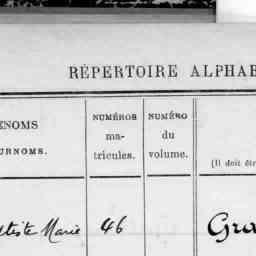 RÉPERTOIRE ALPHAB
ÉNOMS
URNOMS.
NUMÉROS
ma-
tricules.
NUMÉRO
du
volume.
(Il doit êtr
tiste Marie 46 Gra